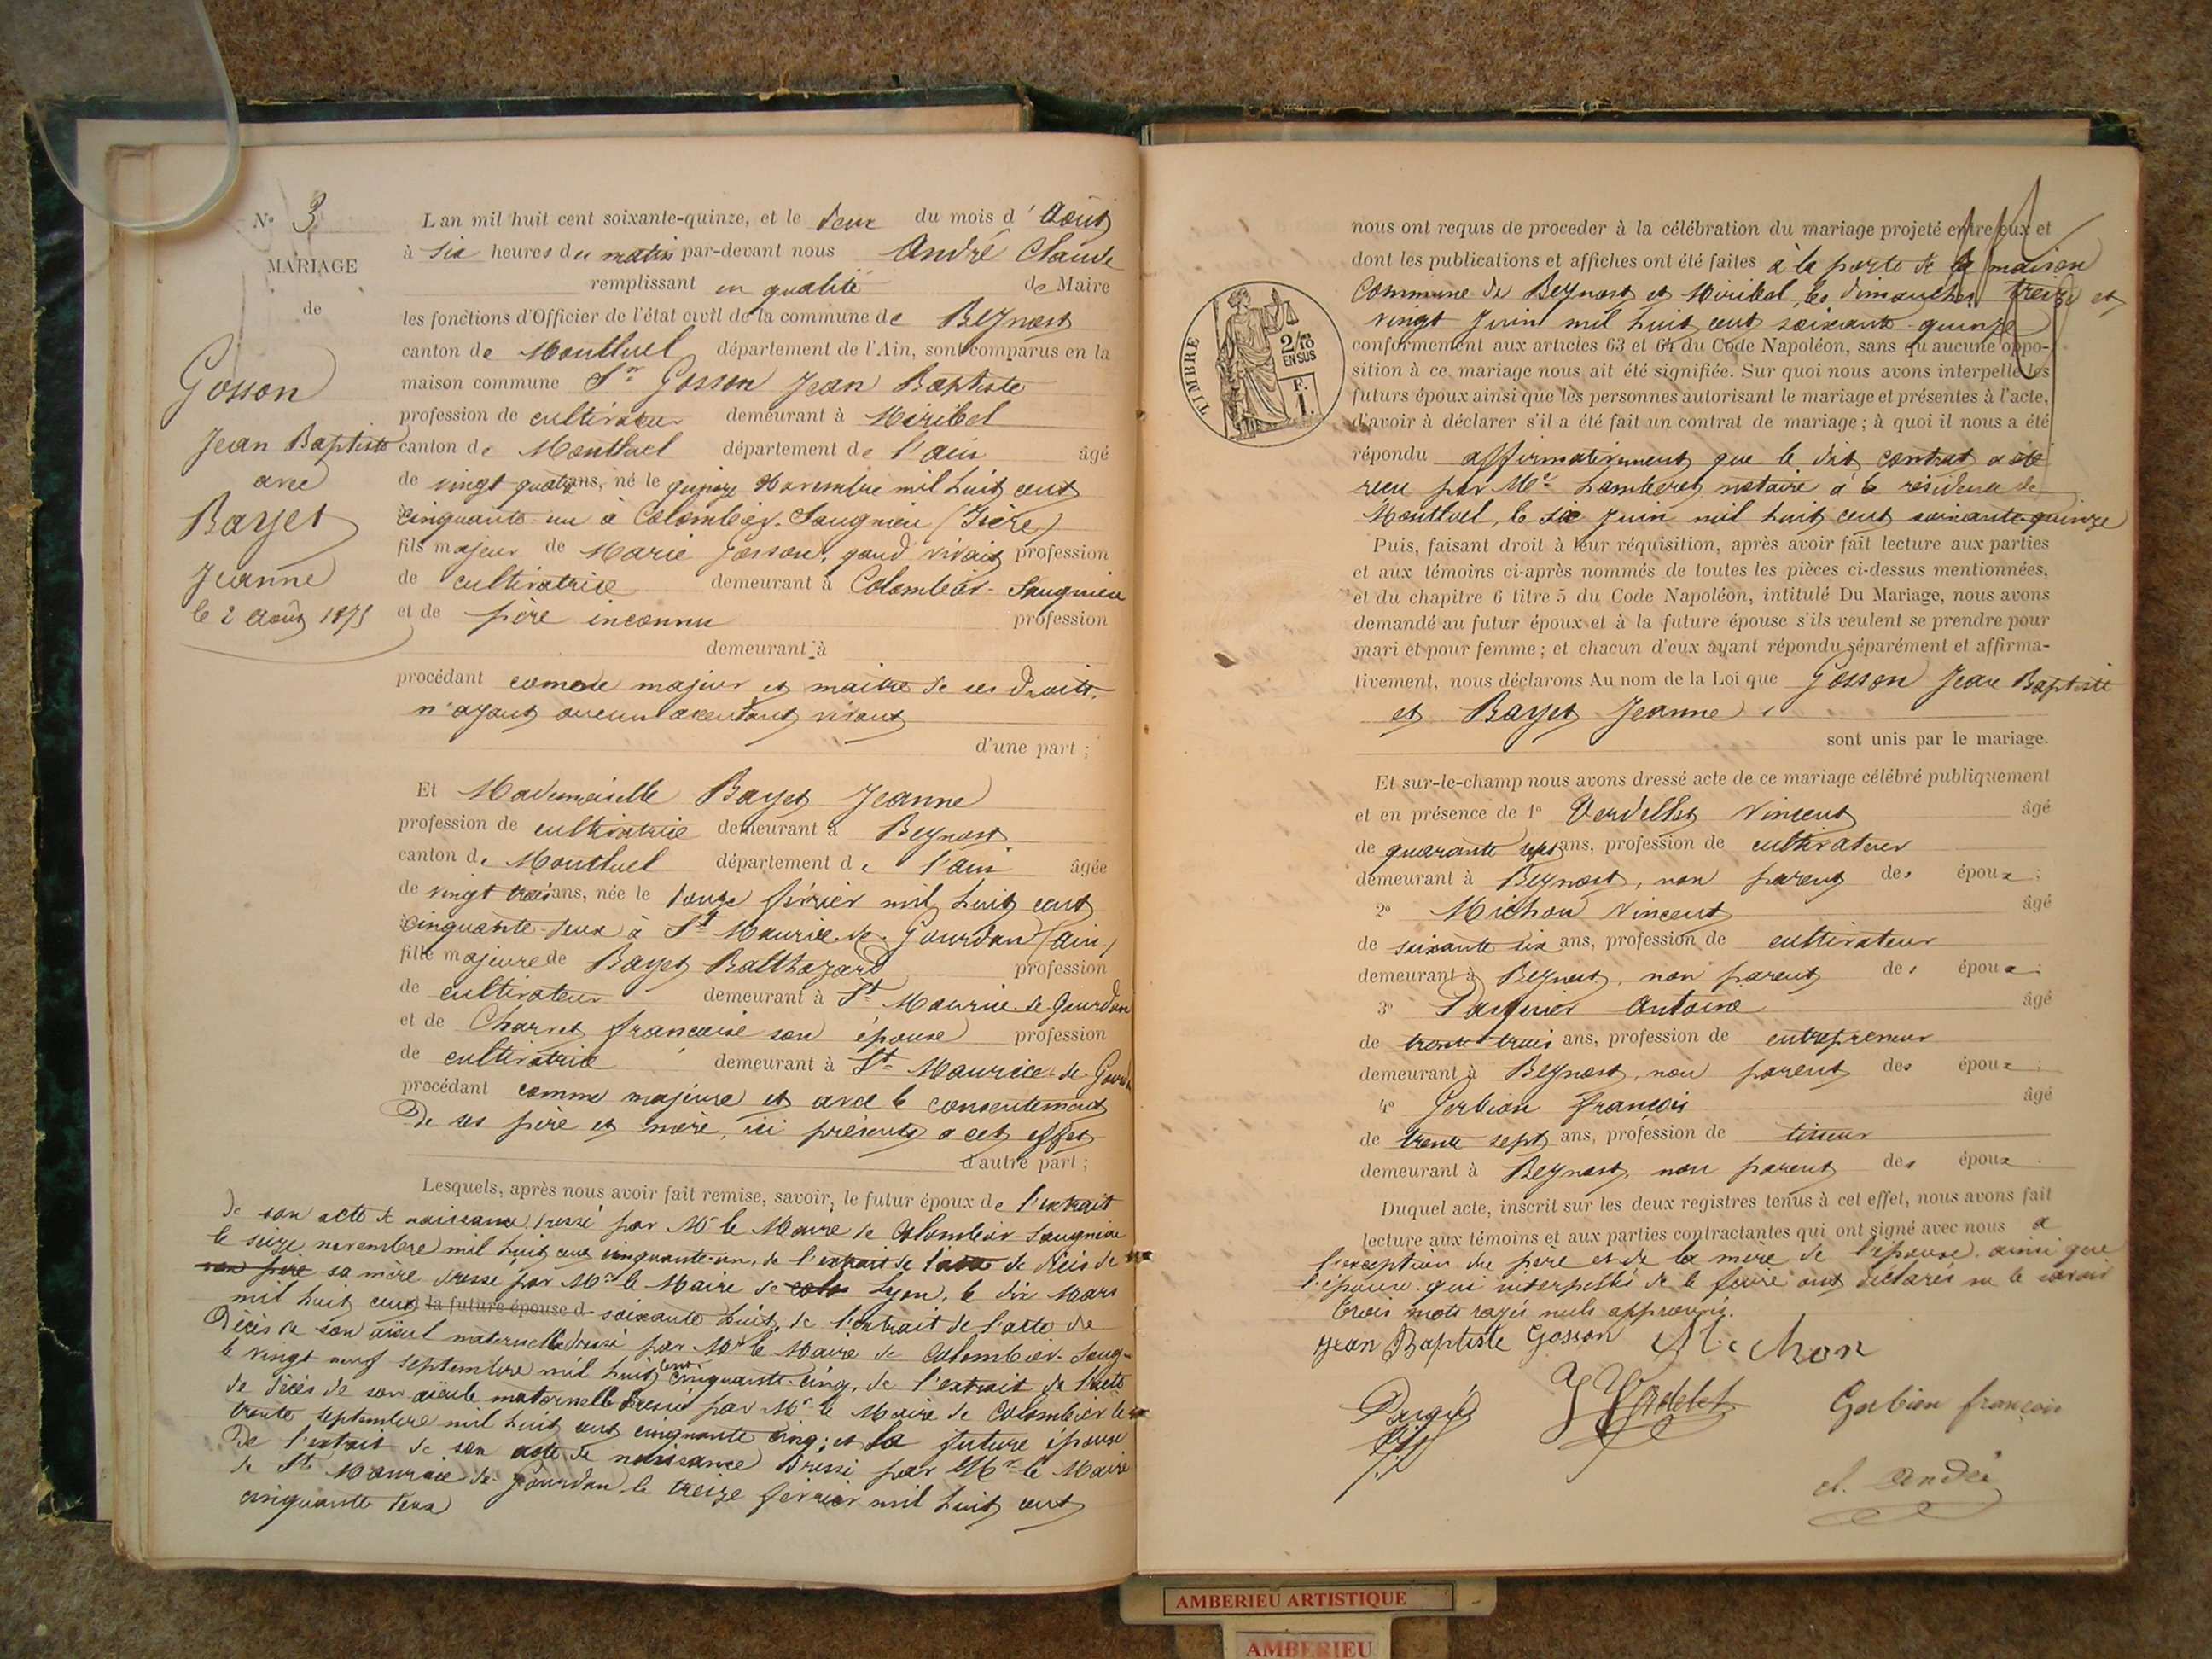 N° 3
MARIAGE
de
Gosson
Jean Baptiste
avec
Bayet
Jeanne
le 2 Août 1875
L'an mil huit cent soixante-quinze, et le deux du mois d'Août
à six heures du matin par-devant nous André Claude
remplissant en qualité de Maire
les fonctions d'Officier de l'état civil de la commune de Beynost
canton de Montluel département de l'Ain, sont comparus en la
maison commune Sr Gosson Jean Baptiste
profession de cultivateur demeurant à Miribel
canton de Montluel département de l'ain âgé
de vingt quatre ans, né le quinze Novembre mil huit cent
cinquante-un à Colombier-Saugnieu (Isère)
fils majeur de Marie Gosson, quand vivait profession
de cultivatrice demeurant à Colombier-Saugnieu
et de père inconnu profession
demeurant à
procédant comme majeur et maître de ses droits
n'ayant aucun ascendant vivant
d'une part ;
Et Mademoiselle Bayet Jeanne
profession de cultivatrice demeurant à Beynost
canton de Montluel département de l'ain âgée
de vingt trois ans, née le douze février mil huit cent
cinquante-deux à St Maurice-de-Gourdan (ain)
fille majeure de Bayet Balthazard profession
de cultivateur demeurant à St Maurice-de-Gourdan
et de Charvet françoise son épouse profession
de cultivatrice demeurant à St Maurice-de-Gourdan
procédant comme majeure et avec le consentement
De ses père et mère, ici présents à cet effet
d'autre part ;
Lesquels, après nous avoir fait remise, savoir, le futur époux de l'extrait
de son acte de naissance dressé par Mr le Maire de Colombier-Saugnieu
le seize novembre mil huit cent cinquante-un, de l'extrait de l'acte de décès de
son père sa mère dressé par Mr le Maire de Lyon, le dix Mars
mil huit cent la future épouse d soixante huit, de l'extrait de l'acte de
Décès de son aïeul maternelle dressé par Mr le Maire de Colombier-Saug-
le vingt neuf septembre mil huit cent cinquante-cinq, de l'extrait de l'acte
de décès de son aïeule maternelle dressé par Mr le Maire de Colombier le
trente septembre mil huit cent cinquante cinq ; et la future épouse
De l'extrait de son acte de naissance Dressé par Mr le Maire
de St Maurice de Gourdan, le treize février mil huit cent
cinquante deux
TIMBRE
2/10
EN SUS
F.
1.
nous ont requis de proceder à la célébration du mariage projeté entre eux et
dont les publications et affiches ont été faites à la porte de la maison
Commune de Beynost et Miribel, les dimanches treize et
vingt Juin mil huit cent soixante-quinze
conformément aux articles 63 et 64 du Code Napoléon, sans qu'aucune oppo-
sition à ce mariage nous ait été signifiée. Sur quoi nous avons interpellé les
futurs époux ainsi que les personnes autorisant le mariage et présentes à l'acte,
d'avoir à déclarer s'il a été fait un contrat de mariage ; à quoi il nous a été
répondu affirmativement que le dit contrat a été
reçu par Me Lamberet notaire à la résidence de
Montluel, le six Juin mil huit cent soixante-quinze
Puis, faisant droit à leur réquisition, après avoir fait lecture aux parties
et aux témoins ci-après nommés de toutes les pièces ci-dessus mentionnées,
et du chapitre 6 titre 5 du Code Napoléon, intitulé Du Mariage, nous avons
demandé au futur époux et à la future épouse s'ils veulent se prendre pour
mari et pour femme ; et chacun d'eux ayant répondu séparément et affirma-
tivement, nous déclarons Au nom de la Loi que Gosson Jean Baptiste
et Bayet Jeanne
sont unis par le mariage.
Et sur-le-champ nous avons dressé acte de ce mariage célébré publiquement
et en présence de 1° Verdellet Vincent âgé
de quarante sept ans, profession de cultivateur
demeurant à Beynost, non parent des époux ;
2° Michon Vincent âgé
de soixante six ans, profession de cultivateur
demeurant à Beynost, non parent des époux ;
3° Pasquier Antoine âgé
de trente trois ans, profession de entrepreneur
demeurant à Beynost, non parent des époux ;
4° Gerbion françois âgé
de trente sept ans, profession de tisseur
demeurant à Beynost, non parent des époux .
Duquel acte, inscrit sur les deux registres tenus à cet effet, nous avons fait
lecture aux témoins et aux parties contractantes qui ont signé avec nous à
l'exception du père et de la mère de l'épouse, ainsi que
l'épouse qui interpellés de le faire ont déclarés ne le savoir
trois mots rayés nuls approuvés.
Jean Baptiste Gosson Michon
Verdelet Gerbion françois
cl. andré
AMBERIEU ARTISTIQUE
AMBERIEU